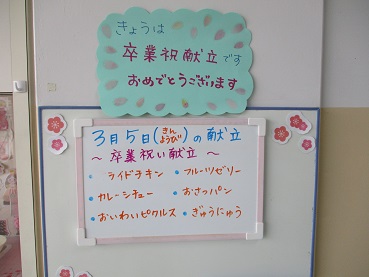 きょうは
卒業祝献立です
おめでとうございます
3月5日(きんようび)の献立
～卒業祝い献立～
・フライドチキン ・フルーツゼリー
・カレーシチュー ・おさつパン
・おいわいピクルス ・ぎゅうにゅう